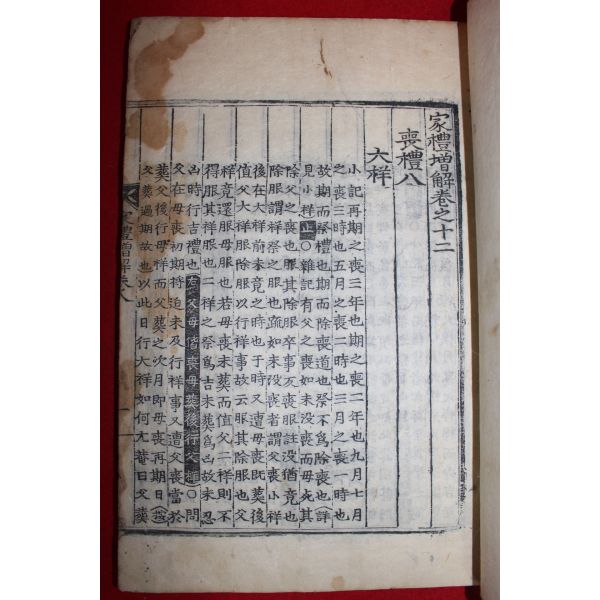 家禮增解卷之十二
喪禮八
大祥
小記再期之喪三年也期之喪二年也九月七月
之喪三時也五月之喪二時也三月之喪一時也
故期而祭禮也期而除喪道也祭不爲除喪也（詳
見小祥）止○雜記有父之喪如未沒喪而母死其
除父之喪也服其除服卒事反喪服註沒猶竟也
除服謂祥祭之服也疏如未沒喪者謂父喪小祥
後在大祥前未竟之時也于時又遭母喪旣葬後
値父大祥服除服以行祥事故云服其除服也父
祥竟還服母服也若母喪未葬而値父二祥則不
得服其祥服也二祥之祭爲吉未葬爲凶故未忍
凶時行吉禮也右父母偕喪母葬後行父祥○問
父在母喪初期將迫未及行祥事又遭父喪當於
葬父後行母祥而父葬之次月卽母喪再期日
父葬過期故也以此日行大祥如何尤菴曰父葬
家禮增解卷八